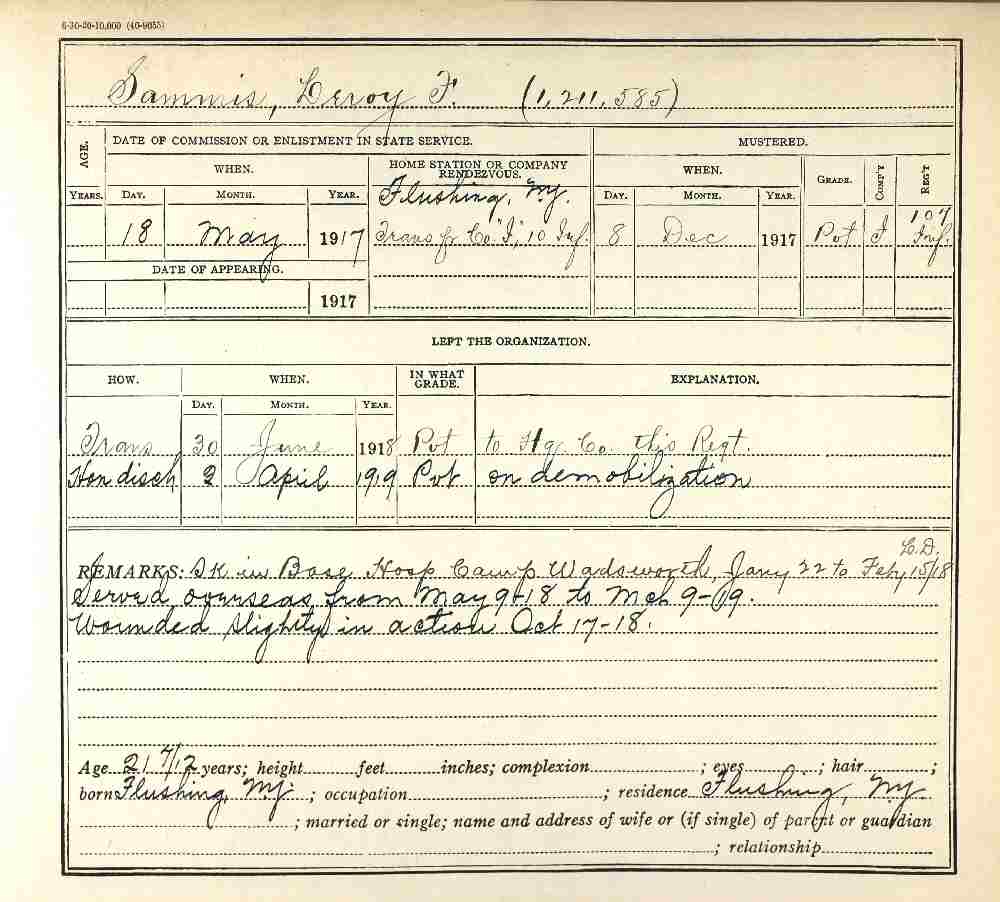 6-30-20-10,000 (40-9055)
Sammis, Leroy F. (1,211,585)
AGE. DATE OF COMMISSION OR ENLISTMENT IN STATE SERVICE. MUSTERED.
WHEN. HOME STATION OR COMPANY RENDEZVOUS. WHEN. GRADE. COMP'Y REG'T
YEARS. DAY. MONTH. YEAR. Flushing, N.Y. DAY. MONTH. YEAR.
18 May 1917 Trans fr Co. "I," 10 Inf. 8 Dec 1917 Pvt I 107 Inf.
DATE OF APPEARING.
1917
LEFT THE ORGANIZATION.
HOW. WHEN. IN WHAT GRADE. EXPLANATION.
DAY. MONTH. YEAR.
Trans 30 June 1918 Pvt to Hq. Co. this Regt.
Hon disch 2 April 1919 Pvt on demobilization
L.D.
REMARKS: SK in Base Hosp Camp Wadsworth, Jany 22 to Feby 15/18
Served overseas from May 9-18 to Mch 9-19.
Wounded slightly in action Oct 17-18.
Age 21 7/12 years; height feet inches; complexion ; eyes ; hair ;
born Flushing, N.Y. ; occupation ; residence Flushing, N.Y.
; married or single; name and address of wife or (if single) of parent or guardian
; relationship